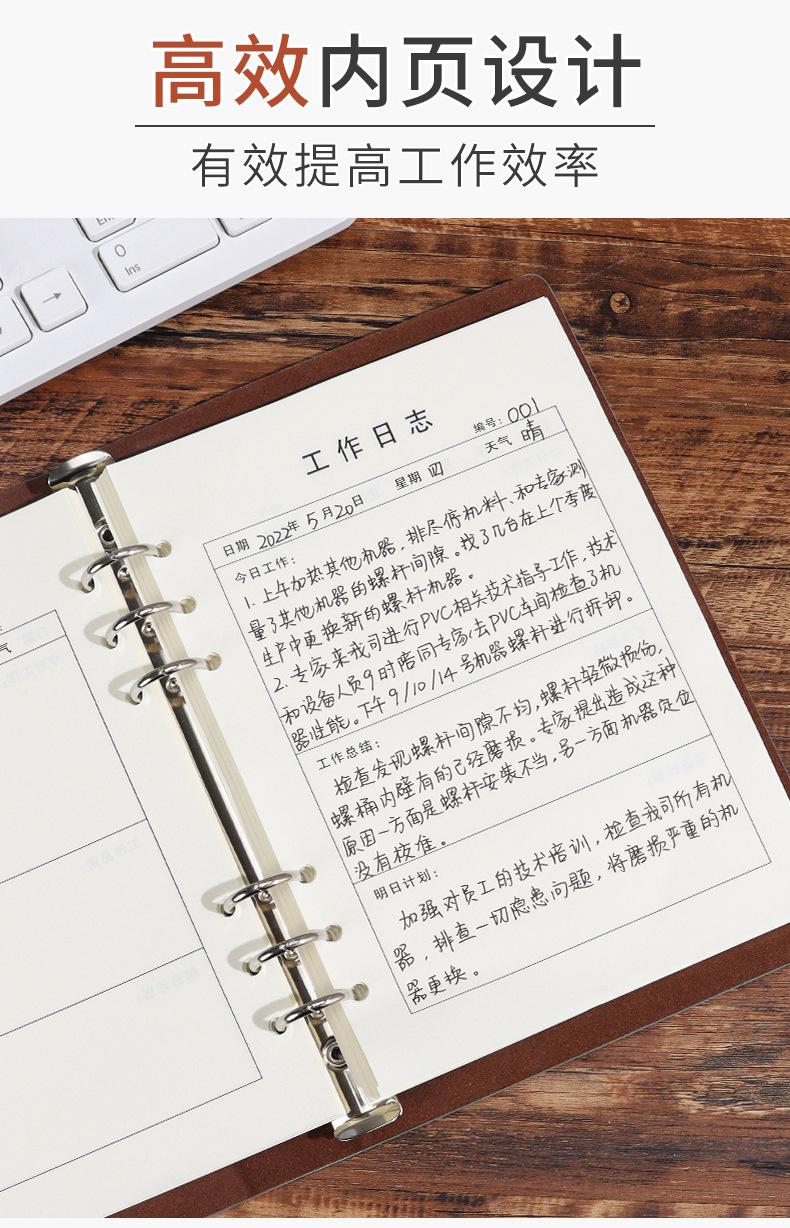 高效内页设计
有效提高工作效率
End
0
Ins
→
工作日志
编号: 001
日期 2022年 5月20日 星期 四 天气 晴
今日工作:
1. 上午加热其他机器,排尽停机料、和专家测
量了其他机器的螺杆间隙。找了几台在上个季度
生产中更换新的螺杆机器。
2. 专家来我司进行PVC相关技术指导工作,技术
和设备人员9时陪同专家去PVC车间检查了机
器性能。下午9/10/14号机器螺杆进行拆卸。
工作总结:
检查发现螺杆间隙不均,螺杆轻微损伤,
螺桶内壁有的已经磨损。专家提出造成这种
原因一方面是螺杆安装不当,另一方面机器定位
没有校准。
明日计划:
加强对员工的技术培训,检查我司所有机
器,排查一切隐患问题,将磨损严重的机
器更换。
气